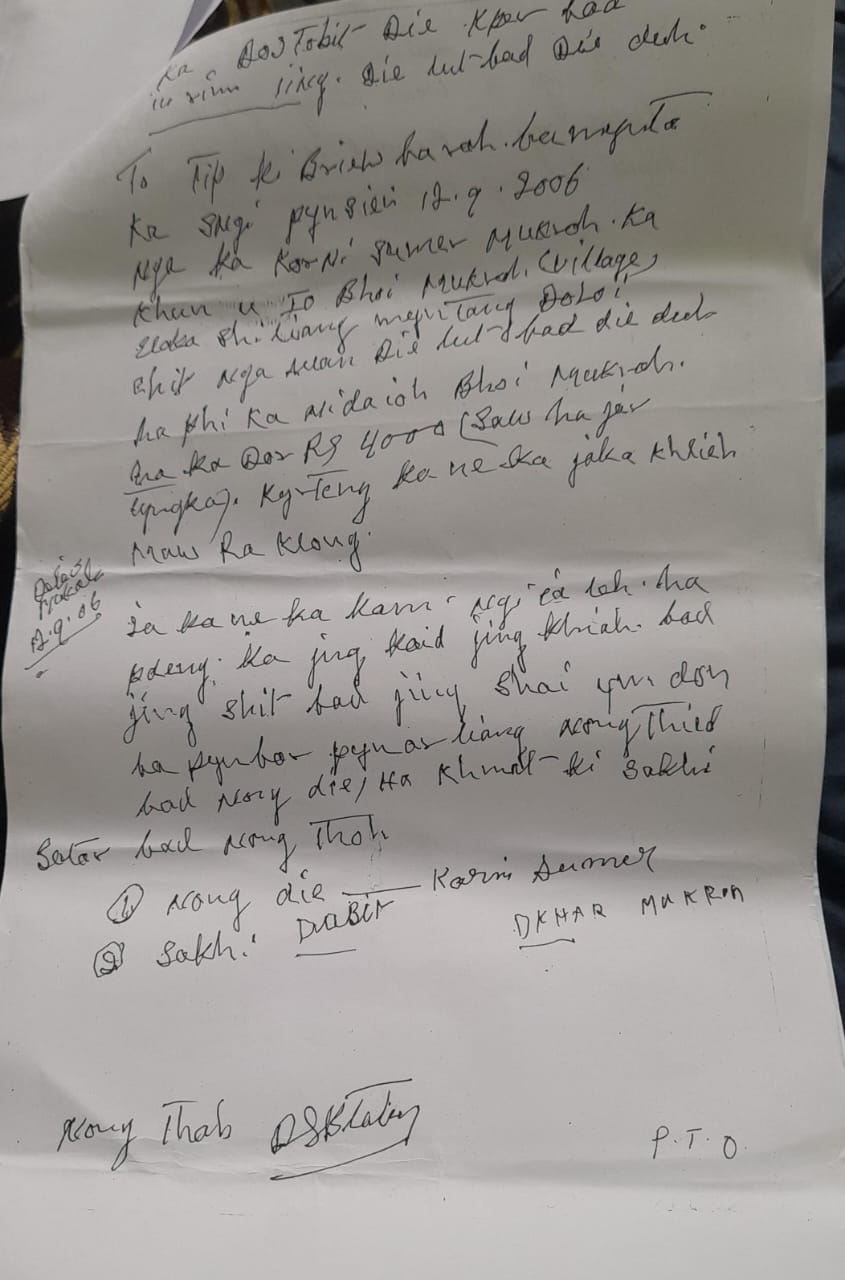 Ka Dostobit Die Kper bad
iing. Die lut bad Die duh.
To Tip ki Briew baroh. ba mynta
Ka sngi pynsiin 12.9.2006
Nga ka Korni Sumer Mukroh. Ka
Khun u Io Bhoi Mukroh (Village)
Elaka Shiliang myntang Doloi
Shit Nga Die lut bad die duh
ha phi Ka Nidaioh Bhoi Mukroh.
ha ka Dor Rs 4000 (Saw hajar
tyngka). Kyrteng ka ne ka jaka Khlieh
Maw Ra Klong.
Ia ka ne ka kam. ngi la leh. ha
pdeng. ka jing kaid jing khiah. bad
jing shit bad jing shai ym don
ba pynbor pynar liang Nong Thied
bad Nong die, Ha Khmat ki Sakhi
Satar bad Nong Thoh
12.9.06
① Nong die — Karni Sumer
② Sakhi DKHAR MUKROH
Nong Thoh
P.T.O.